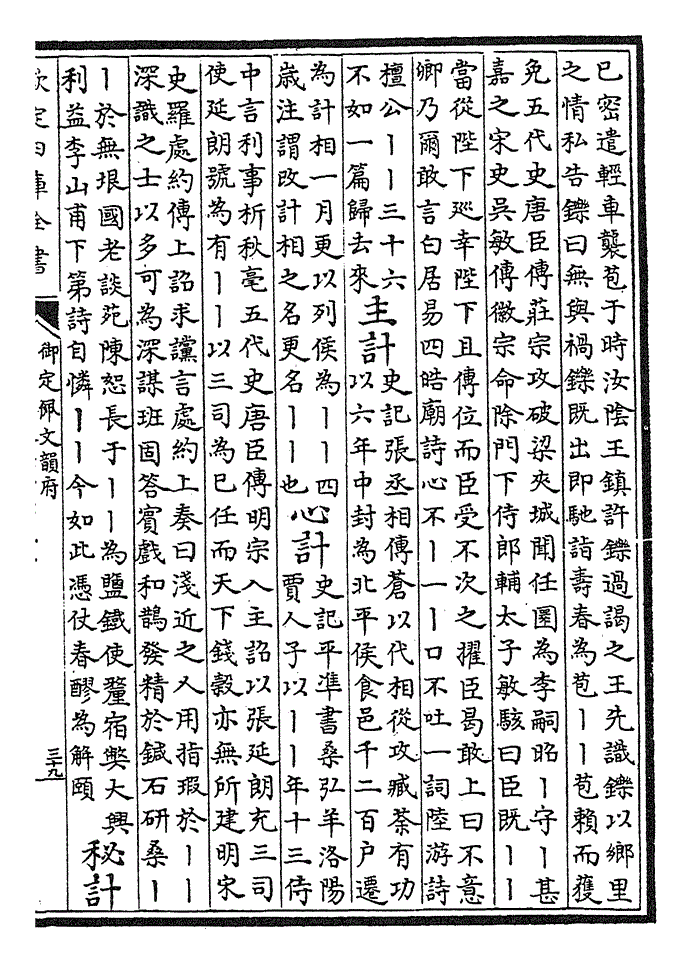 已密遣輕車襲苞于時汝陰王鎮許鑠過謁之王先識鑠以鄉里
之情私告鑠曰無與禍鑠既出即馳詣壽春為苞丨丨苞賴而獲
免五代史唐臣傳莊宗攻破梁夾城聞任圜為李嗣昭丨守丨甚
嘉之宋史吳敏傳徽宗命除門下侍郎輔太子敏駭曰臣既丨丨
當從陛下巡幸陛下且傳位而臣受不次之擢臣曷敢上曰不意
卿乃爾敢言白居易四皓廟詩心不丨一丨口不吐一詞陸游詩
檀公丨丨三十六
不如一篇歸去來
主計
史記張丞相傳蒼以代相從攻臧荼有功
以六年中封為北平侯食邑千二百户遷
為計相一月更以列侯為丨丨四
歲注謂改計相之名更名丨丨也
心計
史記平準書桑弘羊洛陽
賈人子以丨丨年十三侍
中言利事析秋毫五代史唐臣傳明宗入主詔以張延朗充三司
使延朗號為有丨丨以三司為已任而天下錢穀亦無所建明宋
史羅處約傳上詔求讜言處約上奏曰淺近之人用指瑕於丨丨
深識之士以多可為深謀班固答賓戲和鵲發精於鍼石研桑丨
丨於無垠國老談苑陳恕長于丨丨為鹽鐵使釐宿弊大興
利益李山甫下第詩自憐丨丨今如此憑仗春醪為解頤
秘計
欽定四庫全書
御定佩文韻府
三十九